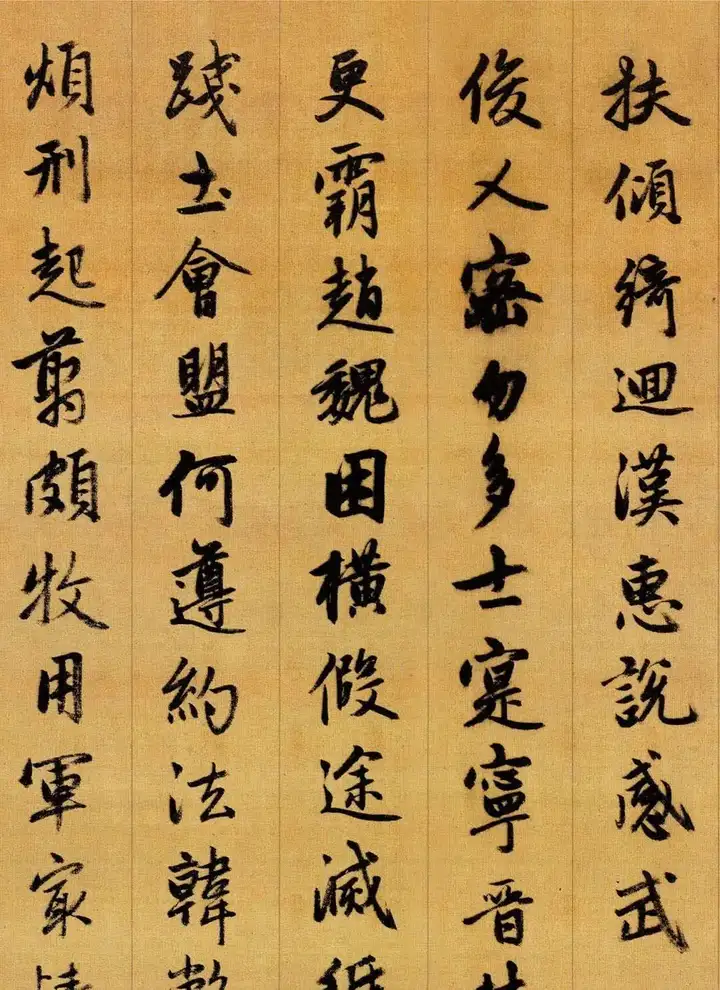 扶傾綺迴漢惠說感武
俊乂密勿多士寔寧晉
更霸趙魏困橫假途滅
踐土會盟何遵約法韓
煩刑起翦頗牧用軍最